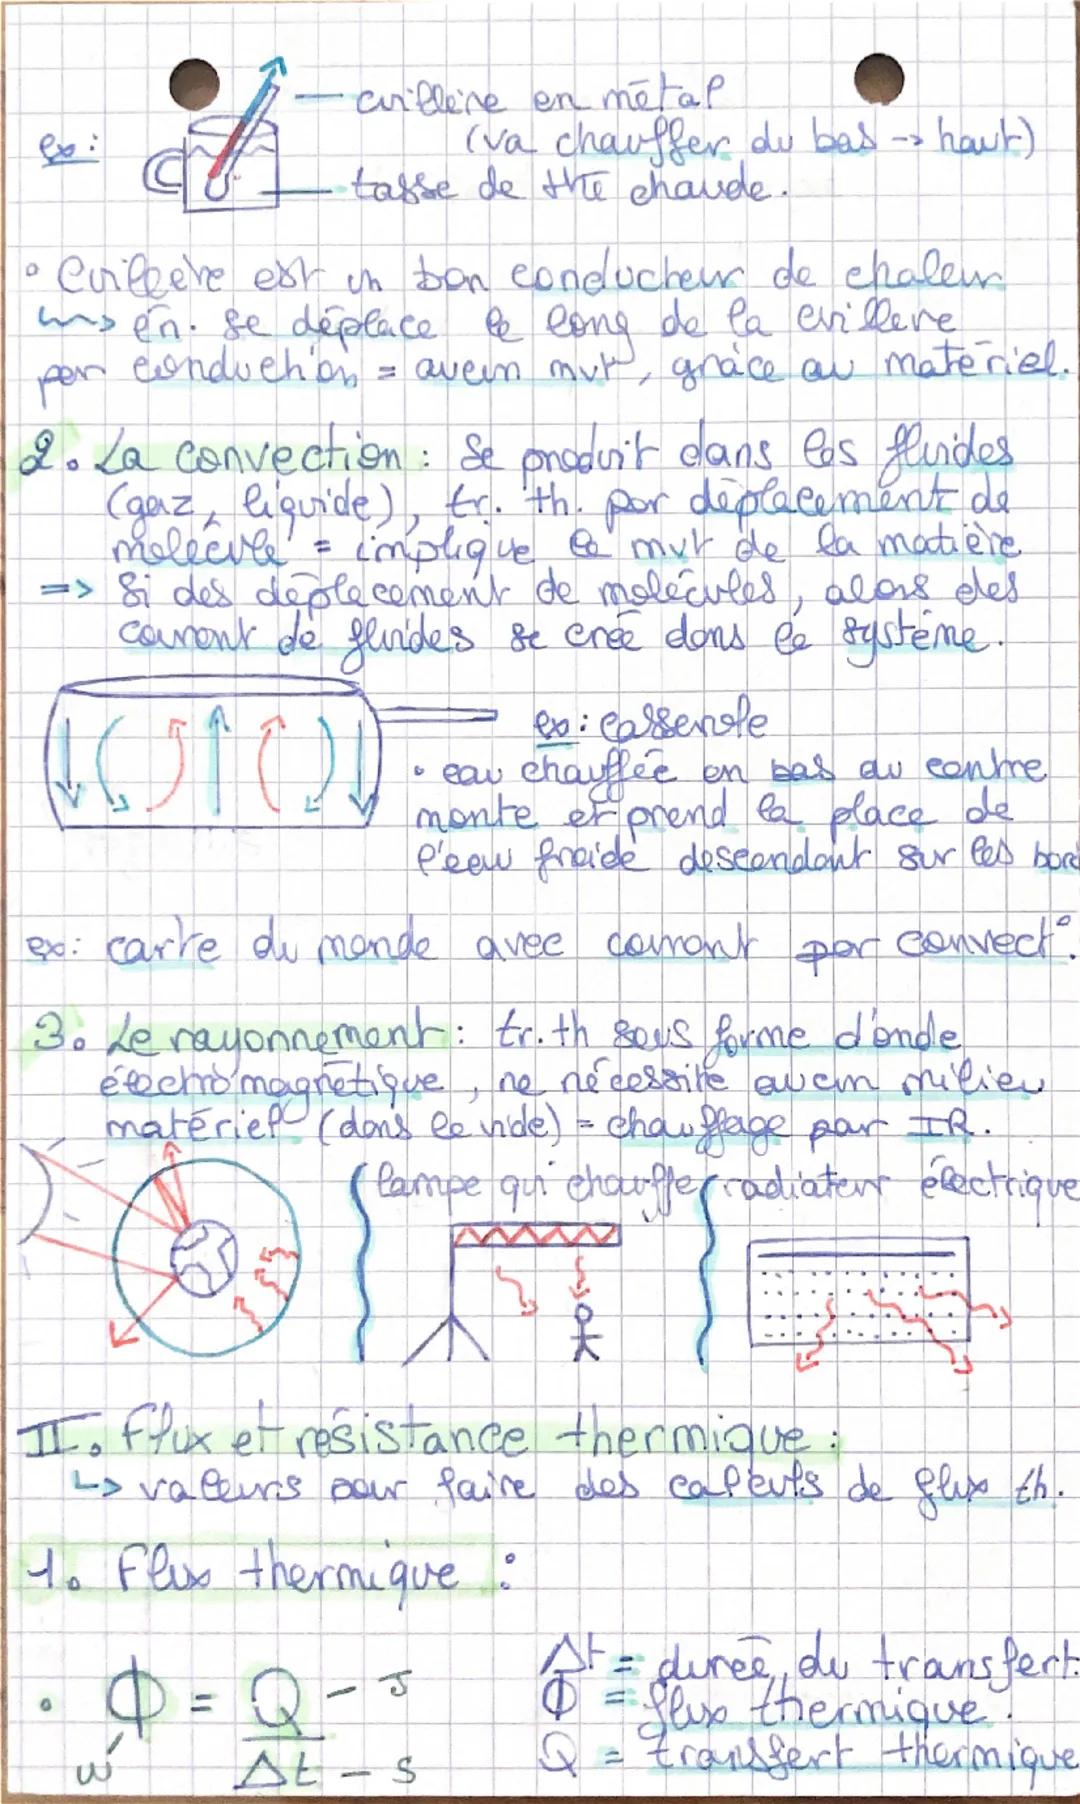 ex:
cuillère en métal
(va chauffer du bas -> haut)
tasse de thé chaude.
• Cuillère est un bon conducteur de chaleur
↳ én. se déplace le long de la cuillère
par conduction = aucun mvt, grâce au matériel.
2. La convection : Se produit dans les fluides
(gaz, liquide), tr. th. par déplacement de
molécule = implique le mvt de la matière
=> Si des déplacement de molécules, alors des
courant de fluides se créé dans le système.
ex: casserole
• eau chauffée en bas au centre
monte et prend la place de
l'eau froide descendant sur les bord
ex: carte du monde avec courant par convect°.
3. Le rayonnement : tr. th sous forme d'onde
électromagnétique, ne nécessite aucun milieu
matériel (dans le vide) = chauffage par IR.
lampe qui chauffe
radiateur électrique
II. Flux et résistance thermique :
↳ valeurs pour faire des calculs de flux th.
1. Flux thermique :
• Φ = Q - J
W
Δt - s
Δt = durée du transfert.
Φ = flux thermique.
Q = transfert thermique